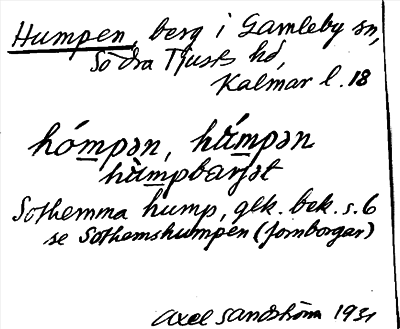 Humpen, berg i Gamleby sn,
Södra Tjusts hd,
Kalmar l. 18
hómpən, hú̇mpən
hùmpbarjət
Sothemma hump, glk. bek. s. 6
se Sothemshumpen (fornborgar)
Axel Sandström 1931